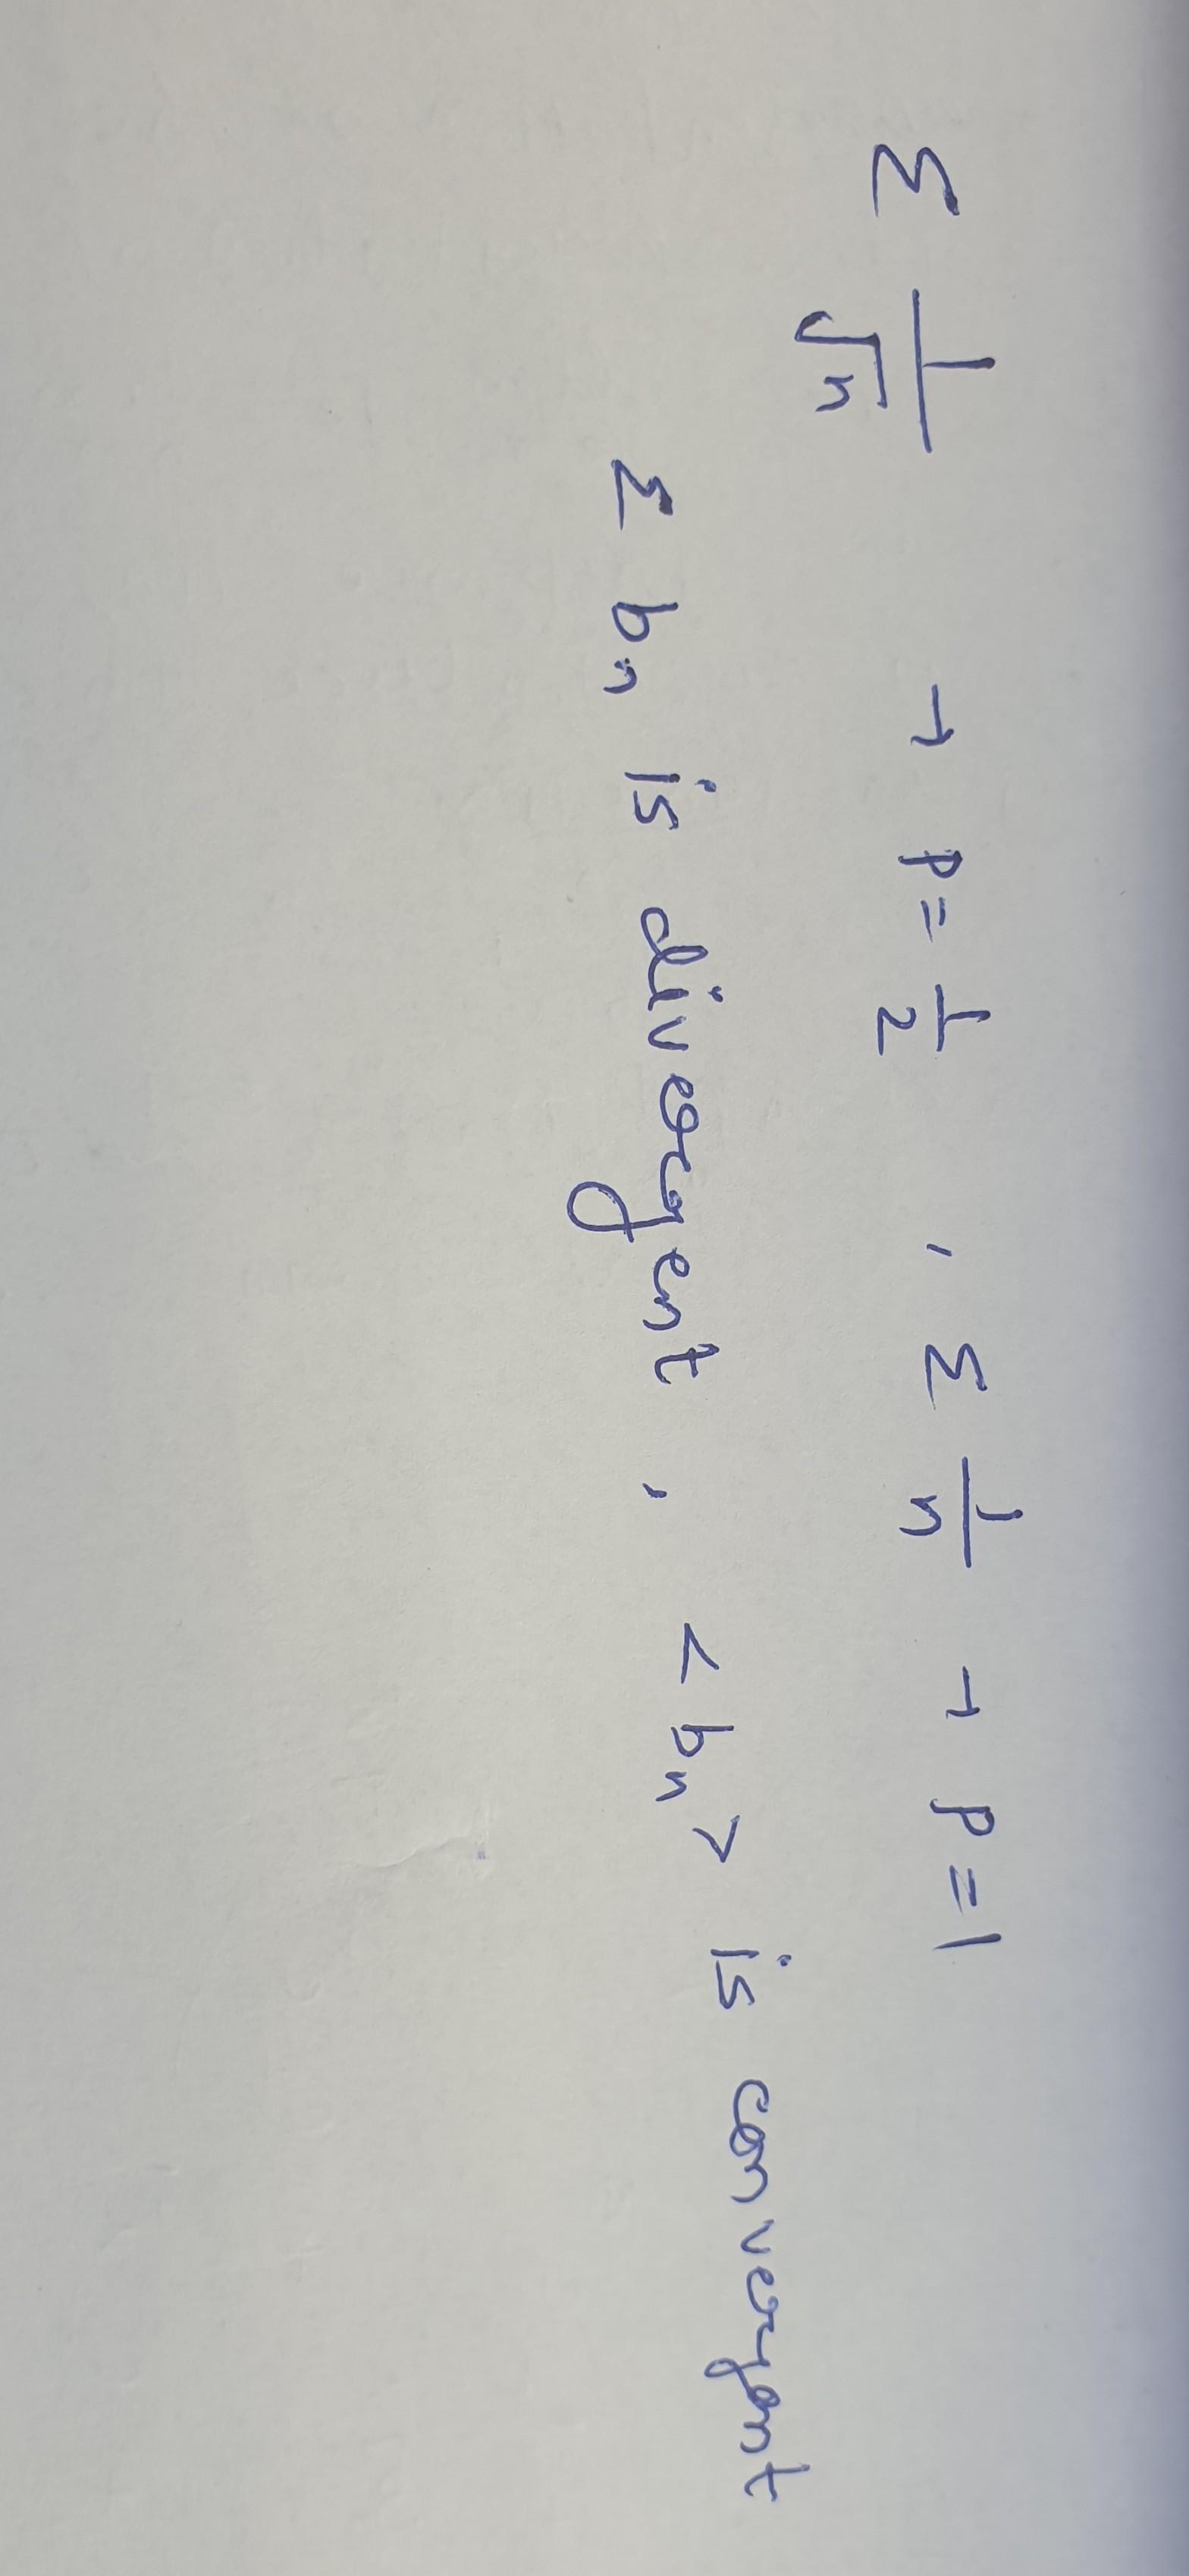 Σ 1/√n → p = 1/2 , Σ 1/n → p = 1
Σ bn is divergent , < bn > is convergent